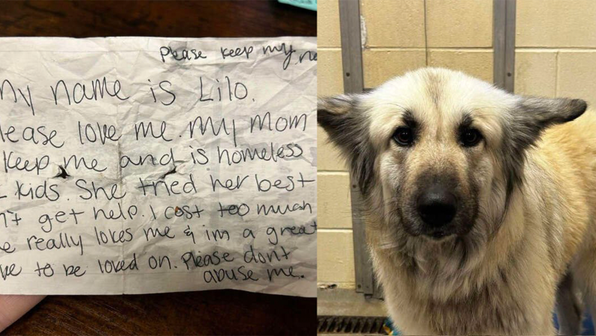 Please keep my
my name is Lilo.
love me. My Mom
keep me and is homeless
kids. She tried her best
get help. I cost too much
really loves me & im a great
to be loved on. Please dont
abuse me.